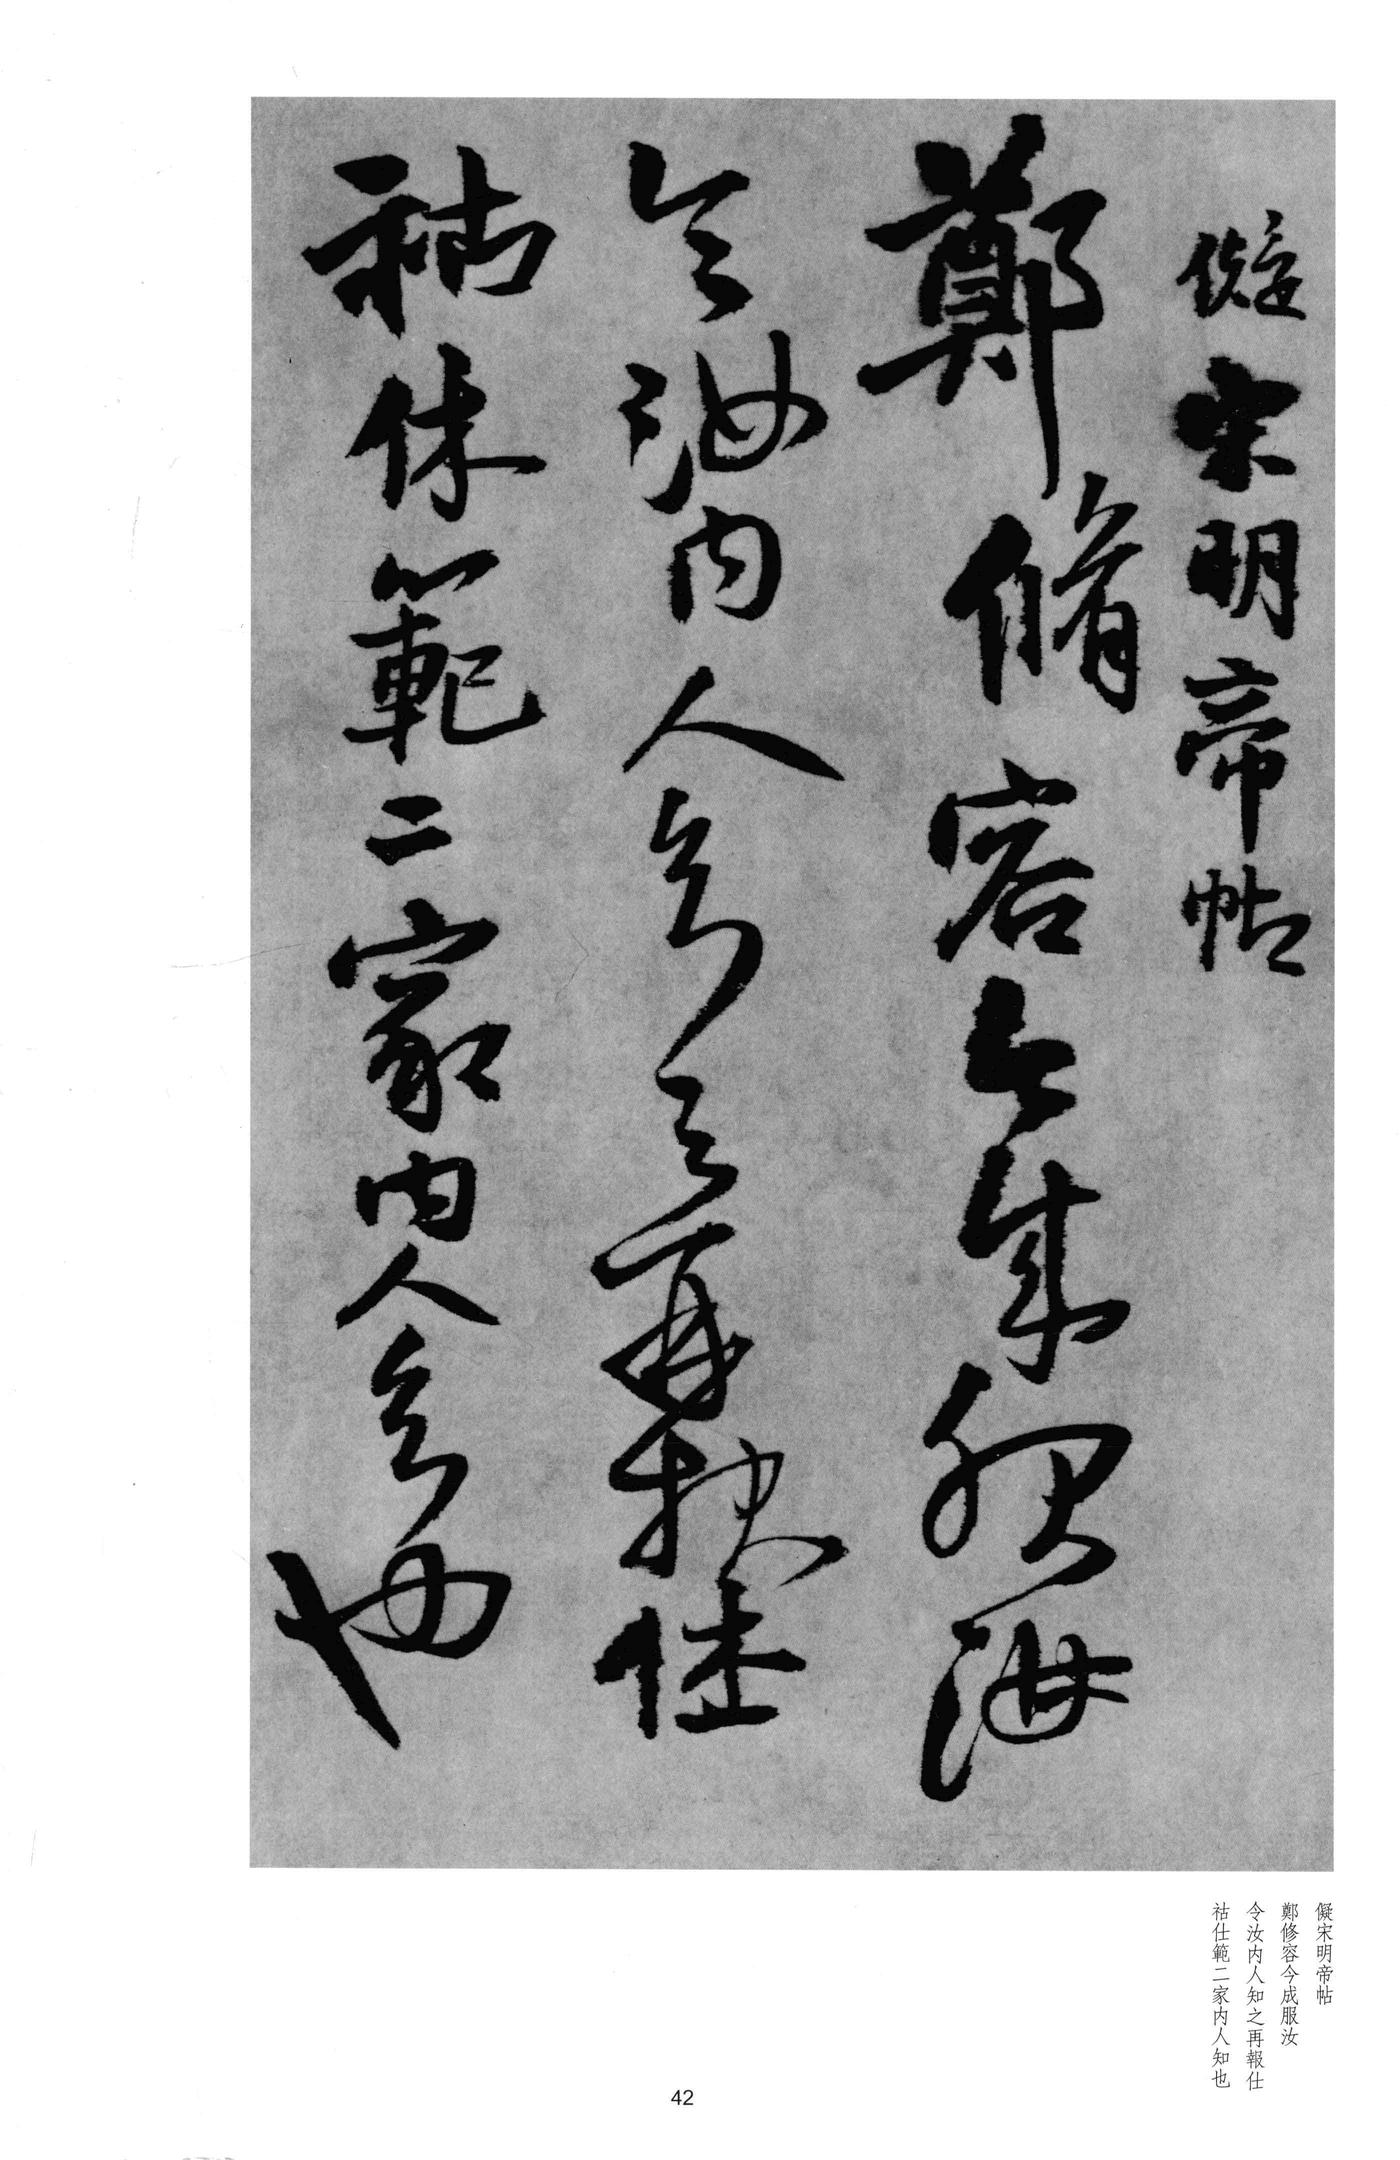 儗宋明帝帖
鄭脩容今成服汝
令汝内人知之再報休
祐休範二家内人知也
儗宋明帝帖
鄭修容今成服汝
令汝内人知之再報仕
祜仕範二家内人知也
42